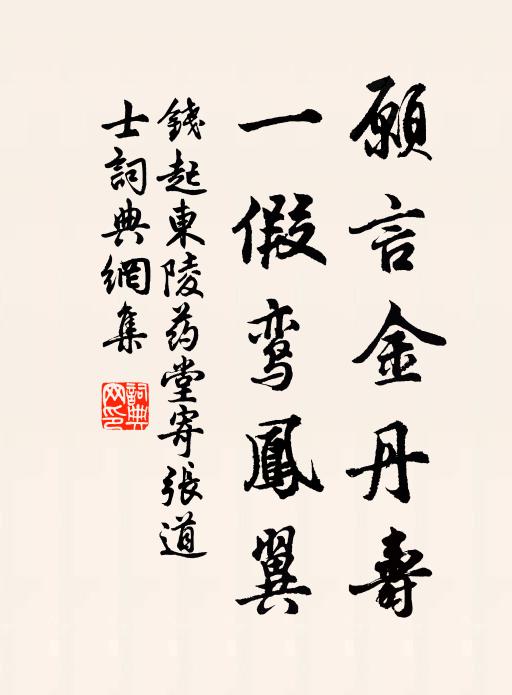 願言金丹壽
一假鸾鳳翼
錢起東陵药堂寄張道
士詞典網集
詞典
网印